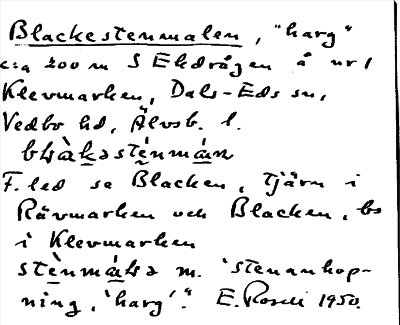 Blackestenmalen, "harg"
c:a 200 m S Ekdrågen å nr 1
Klevmarken, Dals-Eds sn,
Vedbo hd, Älvsb. l.
blàkəstènmáɳ
F. led se Blacken, tjärn i
Rävmarken och Blacken, bs
i Klevmarken
stènmáɭə m. 'stenanhop-
ning, 'harg'." E. Rosell 1950.